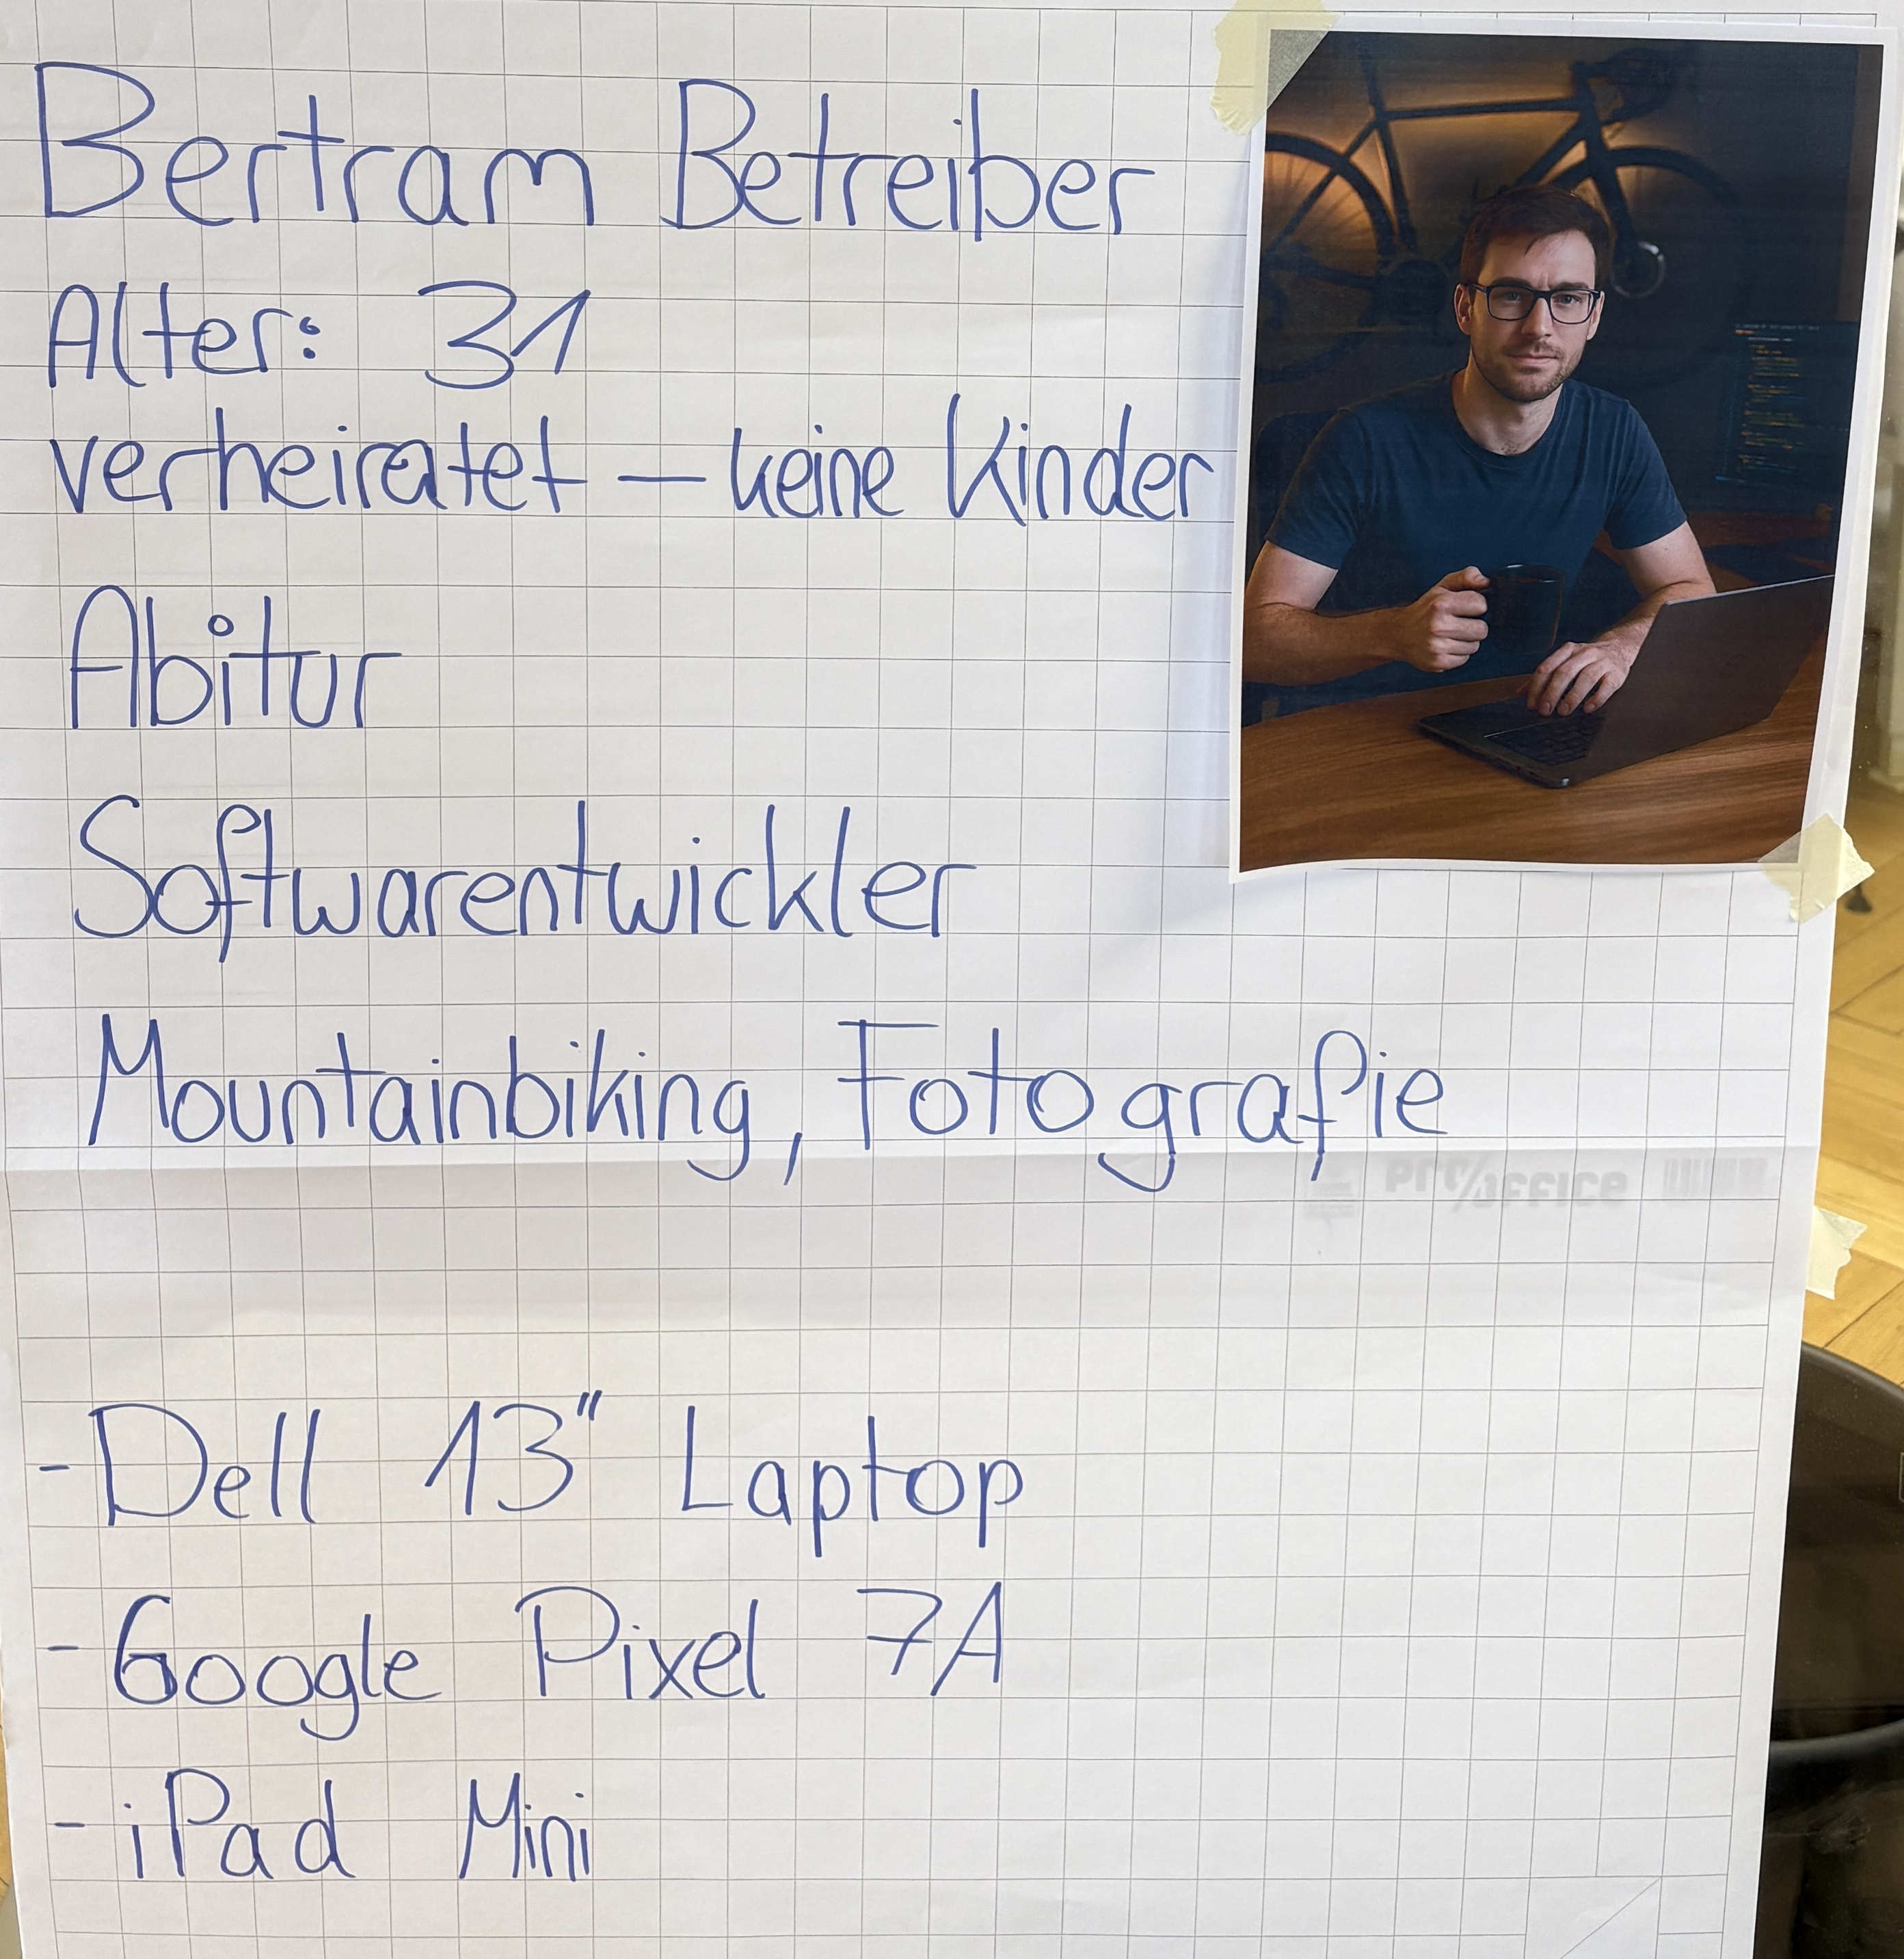 Bertram Betreiber
Alter: 31
verheiratet – keine Kinder
Abitur
Softwarentwickler
Mountainbiking, Fotografie
- Dell 13" Laptop
- Google Pixel 7A
- iPad Mini